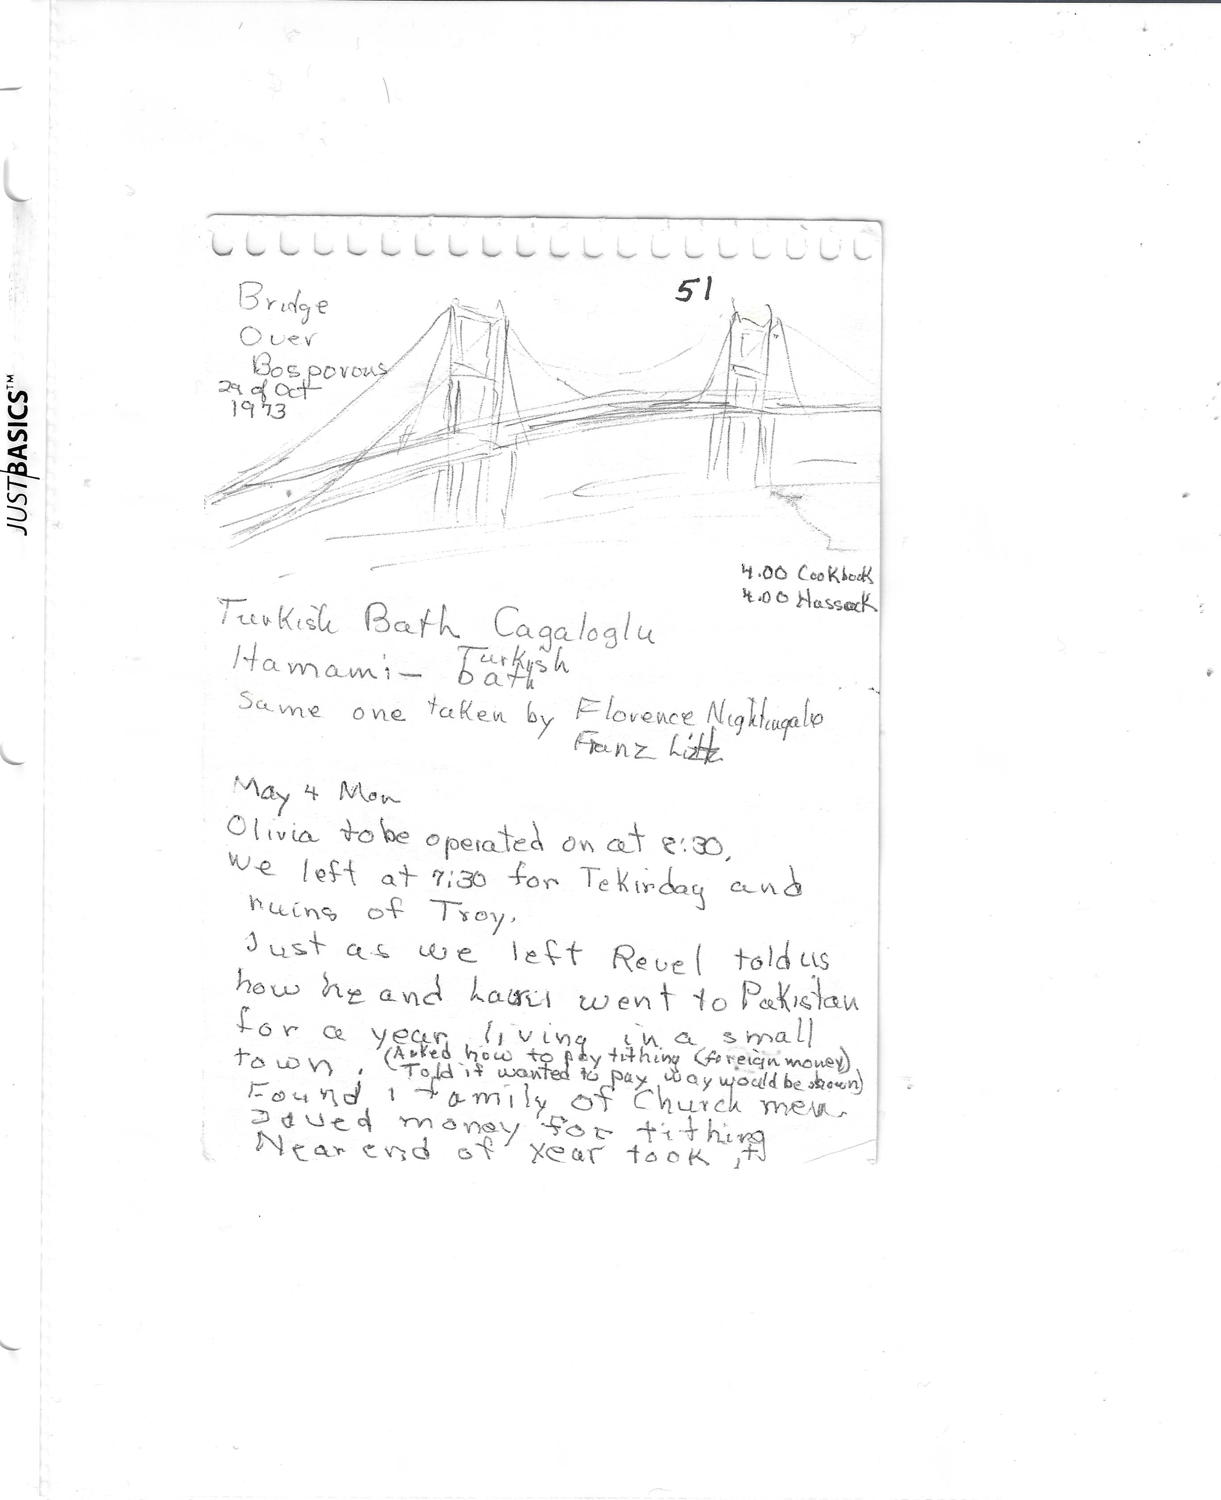 JUSTBASICS™
51
Bridge
Over
Bosporous
29 of Oct
1973
4.00 Cookbook
4.00 Hassock
Turkish Bath Cagaloglu
Hamami - Turkish
bath
Same one taken by Florence Nightingale
Franz
May 4 Mon
Olivia to be operated on at 8:30.
We left at 7:30 for Tekirdag and
ruins of Troy.
Just as we left Revel told us
how he and went to Pakistan
for a year living in a small
town. (Asked how to pay tithing (foreign money)
(Told if wanted to pay way would be shown)
Found 1 family of Church mem.
Saved money for tithing
Near end of year took it